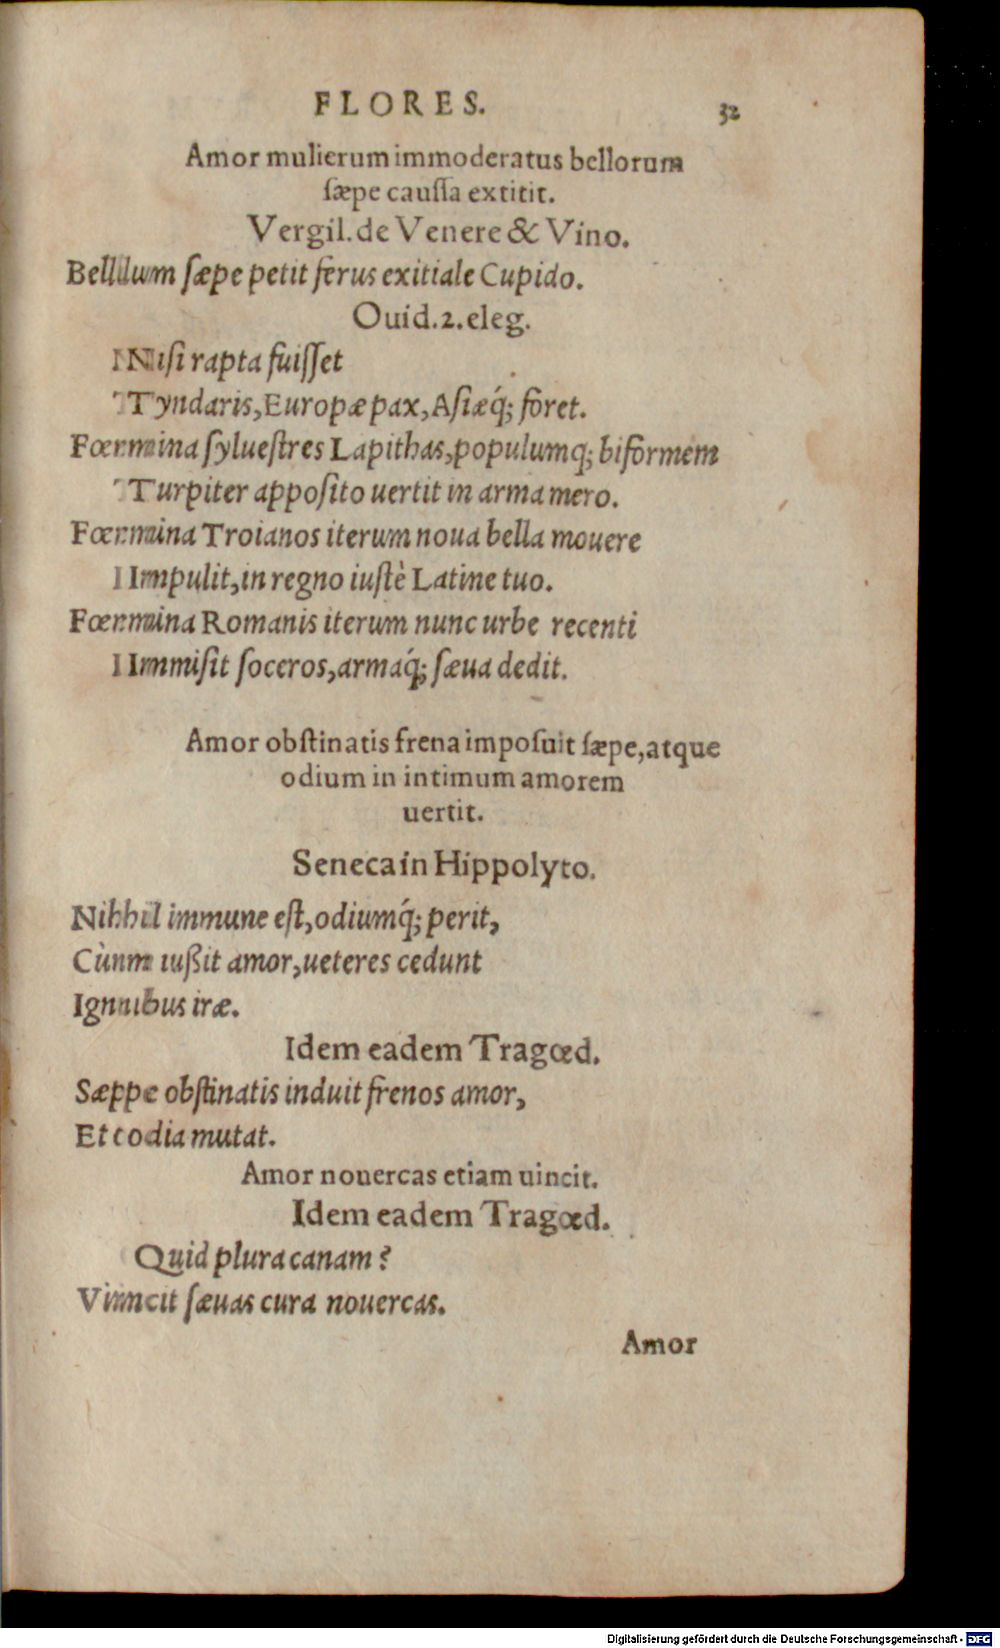 FLORES. 32
Amor mulierum immoderatus bellorum
sæpe caussa extitit.
Vergil. de Venere & Vino.
Bellum sæpe petit ferus exitiale Cupido.
Ouid. 2. eleg.
Nisi rapta fuisset
Tyndaris, Europæ pax, Asiæq́; foret.
Fœmina syluestres Lapithas, populumq; biformem
Turpiter apposito uertit in arma mero.
Fœmina Troianos iterum noua bella mouere
Impulit, in regno iustè Latine tuo.
Fœmina Romanis iterum nunc urbe recenti
Immisit soceros, armaq́; sæua dedit.
Amor obstinatis frena imposuit sæpe, atque
odium in intimum amorem
uertit.
Seneca in Hippolyto.
Nihil immune est, odiumq́; perit,
Cùm iußit amor, ueteres cedunt
Ignibus iræ.
Idem eadem Tragœd.
Sæpe obstinatis induit frenos amor,
Et odia mutat.
Amor nouercas etiam uincit.
Idem eadem Tragœd.
Quid plura canam?
Vincit sæuas cura nouercas.
Amor
Digitalisierung gefördert durch die Deutsche Forschungsgemeinschaft - DFG